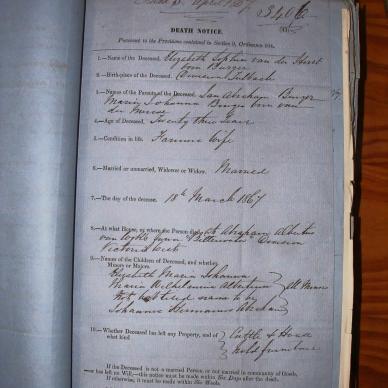 April 1867
3406
DEATH NOTICE.
Pursuant to the Provisions contained in Section 9, Ordinance 104.
1.—Name of the Deceased, Elizabeth Sophia van der Horst
born Burger
2.—Birth-place of the Deceased, Division Tulbagh
3.—Names of the Parents of the Deceased, Jan Abraham Burger
Maria Johanna Burger born van
der Merwe
4.—Age of Deceased, Twenty three Years
5.—Condition in life, Farmers Wife
6.—Married or unmarried, Widower or Widow, Married
7.—The day of the decease, 18th March 1867
8.—At what House, or where the Person died, Abraham Albertus
van Wyk's farm Division
Victoria West
9.—Names of the Children of Deceased, and whether
Minors or Majors.
Elizabeth Maria Johanna
Maria Wilhelmina All Minors
to be
Johannes Hermanus Abraham
10.—Whether Deceased has left any Property, and of
what kind Cattle & House
hold furniture
If the Deceased is not a married Person, or not married in community of Goods,
or has left no Will,—this notice must be made within Six Days after the death.
If otherwise, it must be made within Six Weeks.